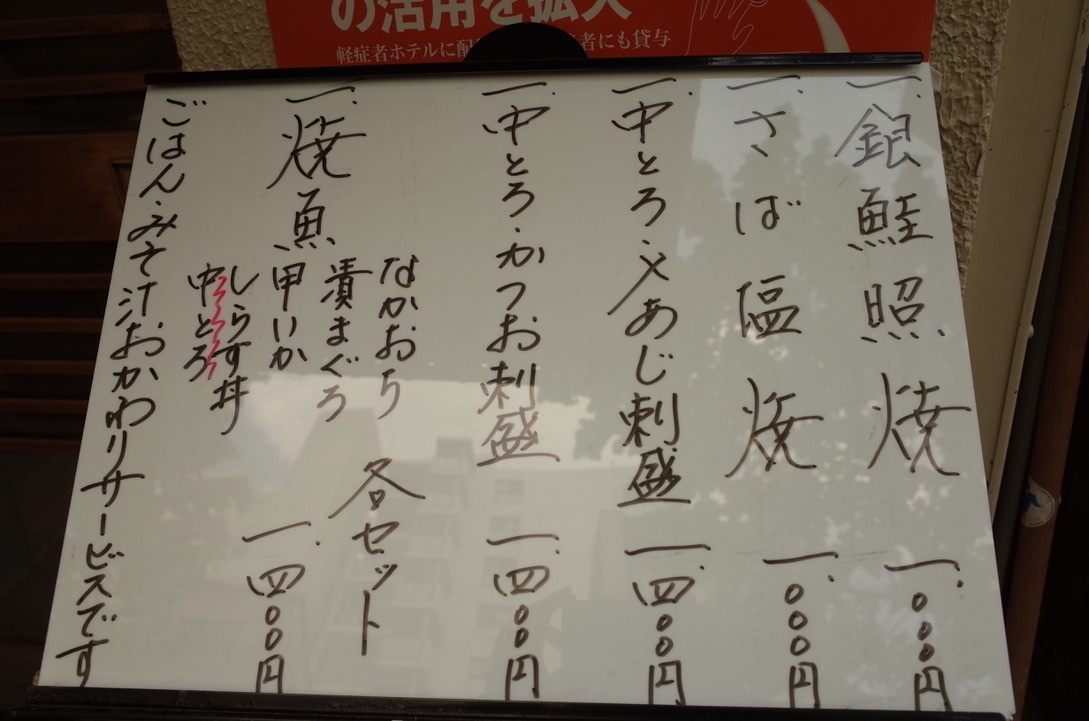 の活用を拡大
軽症者ホテルに配
者にも貸与
一、銀鮭照焼 一、〇〇〇円
さば塩焼 一、〇〇〇円
一、中とろ・〆あじ刺盛 一、四〇〇円
一、中とろ・かつお刺盛 一、四〇〇円
一、焼魚
なかおち
漬まぐろ
甲いか
しらす丼
中とろ
各セット
一、四〇〇円
ごはん・みそ汁おかわりサービスです